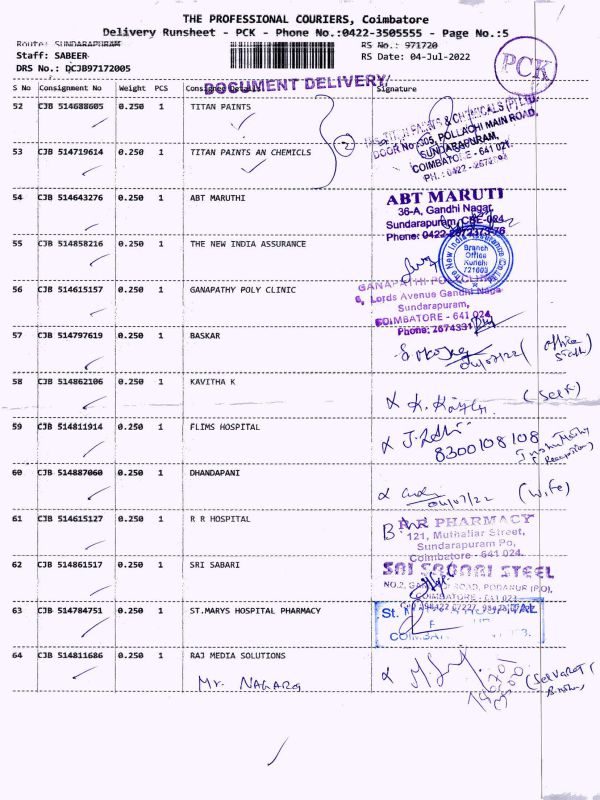 THE PROFESSIONAL COURIERS, Coimbatore
Delivery Runsheet - PCK - Phone No.:0422-3505555 - Page No.:5
Route: SUNDARAPURAM
RS No.: 971720
Staff: SABEER
RS Date: 04-Jul-2022
PCK
DRS No.: DCJB97172005
DOCUMENT DELIVERY
S No Consignment No Weight PCS Consignee Details Signature
52 CJB 514688605 0.250 1 TITAN PAINTS
2
PAINTS & CHEMICALS (P) Ltd.
DOOR No. 305, POLLACHI MAIN ROAD,
SUNDARAPURAM,
COIMBATORE - 641 021.
53 CJB 514719614 0.250 1 TITAN PAINTS AN CHEMICLS
54 CJB 514643276 0.250 1 ABT MARUTHI
ABT MARUTI
36-A, Gandhi Nagar,
Sundarapuram, CBE-084
Phone: 0422-
55 CJB 514858216 0.250 1 THE NEW INDIA ASSURANCE
The New India Assurance Co. Ltd.
Branch
Office
Kurichi
721603
56 CJB 514615157 0.250 1 GANAPATHY POLY CLINIC
GANAPATHI POLY CLINIC
6, Lords Avenue Gandhi Nagar
Sundarapuram,
COIMBATORE - 641 024.
Phone: 2674331
57 CJB 514797619 0.250 1 BASKAR
04/07/22 (office
staff)
58 CJB 514862106 0.250 1 KAVITHA K
(Self)
59 CJB 514811914 0.250 1 FLIMS HOSPITAL
8300108108
60 CJB 514887060 0.250 1 DHANDAPANI
04/07/22 (Wife)
61 CJB 514615127 0.250 1 R R HOSPITAL
R R PHARMACY
121, Muthaliar Street,
Sundarapuram Po,
Coimbatore - 641 024.
62 CJB 514861517 0.250 1 SRI SABARI
SRI SABARI STEEL
ROAD, PODANUR (P.O),
COIMBATORE
63 CJB 514784751 0.250 1 ST.MARYS HOSPITAL PHARMACY
St.
64 CJB 514811686 0.250 1 RAJ MEDIA SOLUTIONS
Mr. NAGARA